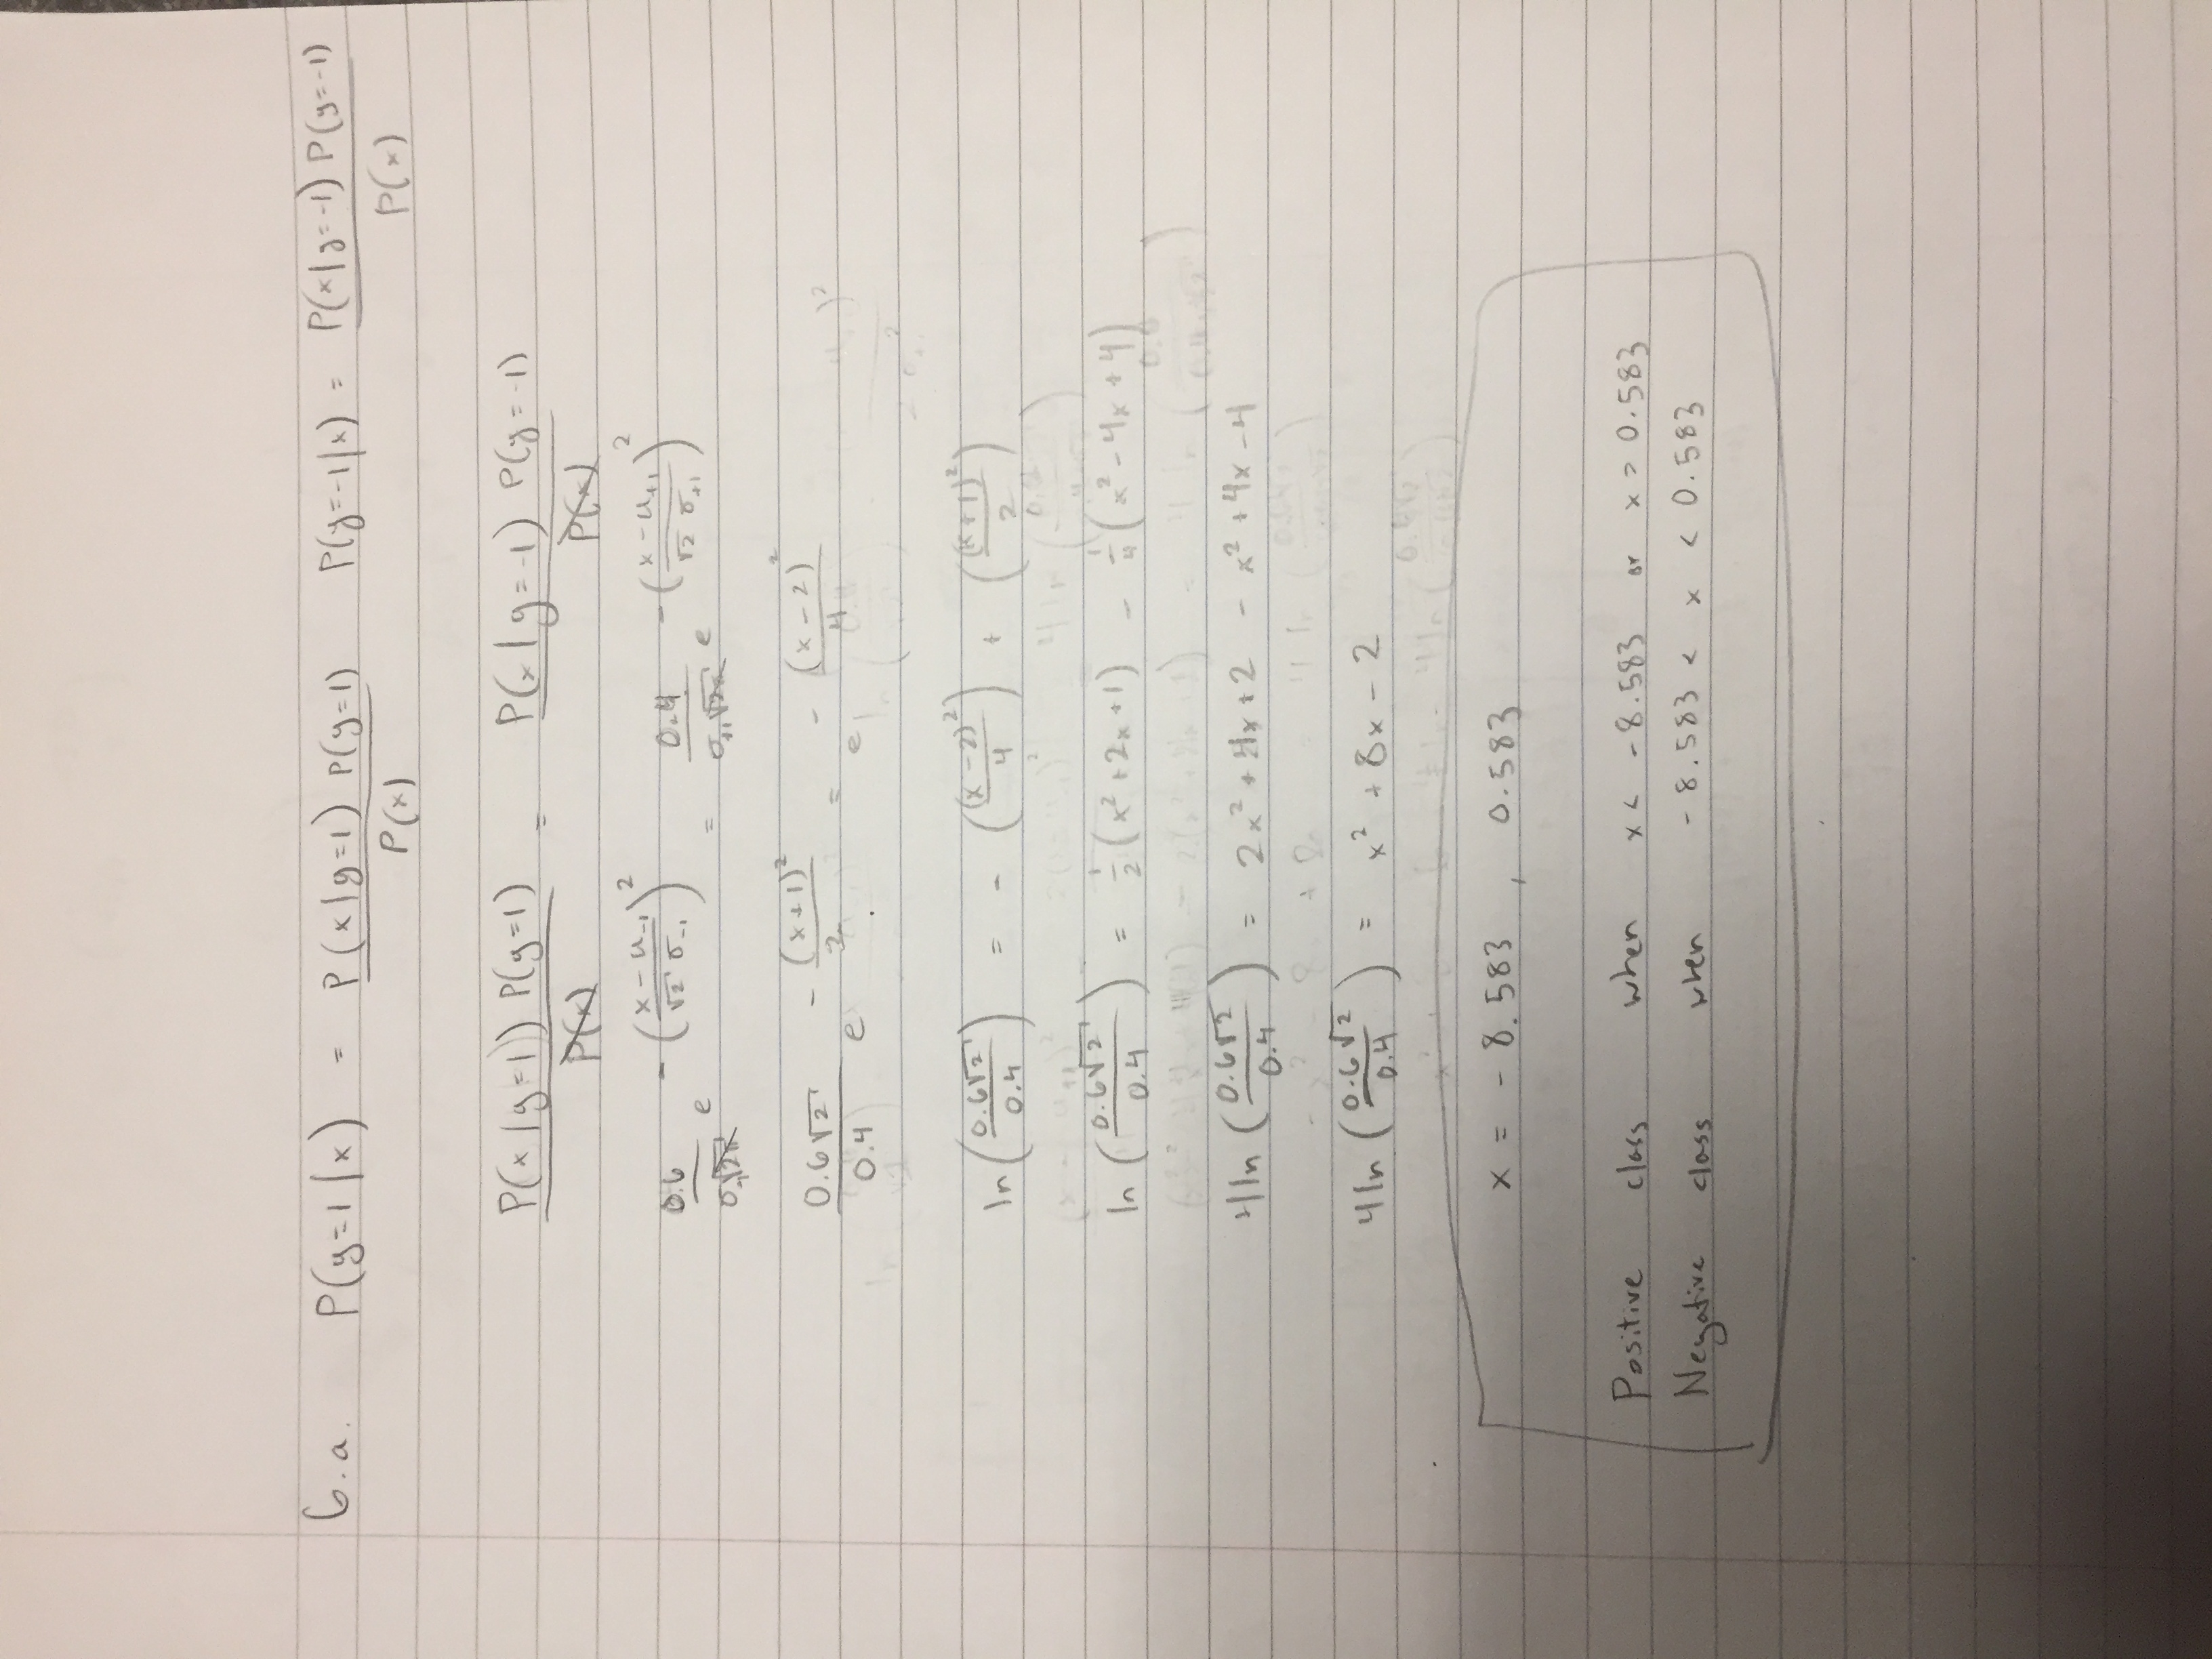 6.a. P(y=1|x) = P(x|y=1) P(y=1) / P(x) P(y=-1|x) = P(x|y=-1) P(y=-1) / P(x)
P(x|y=1) P(y=1) / P(x) = P(x|y=-1) P(y=-1) / P(x)
0.6 / σ₋₁√2π e^-((x-u₋₁)/(√2 σ₋₁))² = 0.4 / σ₊₁√2π e^-((x-u₊₁)/(√2 σ₊₁))²
0.6√2 / 0.4 e^-(x+1)²/2 = e^-(x-2)²/4
ln(0.6√2 / 0.4) = -((x-2)²/4) + ((x+1)²/2)
ln(0.6√2 / 0.4) = 1/2 (x²+2x+1) - 1/4 (x²-4x+4)
4ln(0.6√2 / 0.4) = 2x²+4x+2 - x²+4x-4
4ln(0.6√2 / 0.4) = x²+8x-2
x = -8.583, 0.583
Positive class when x < -8.583 or x > 0.583
Negative class when -8.583 < x < 0.583